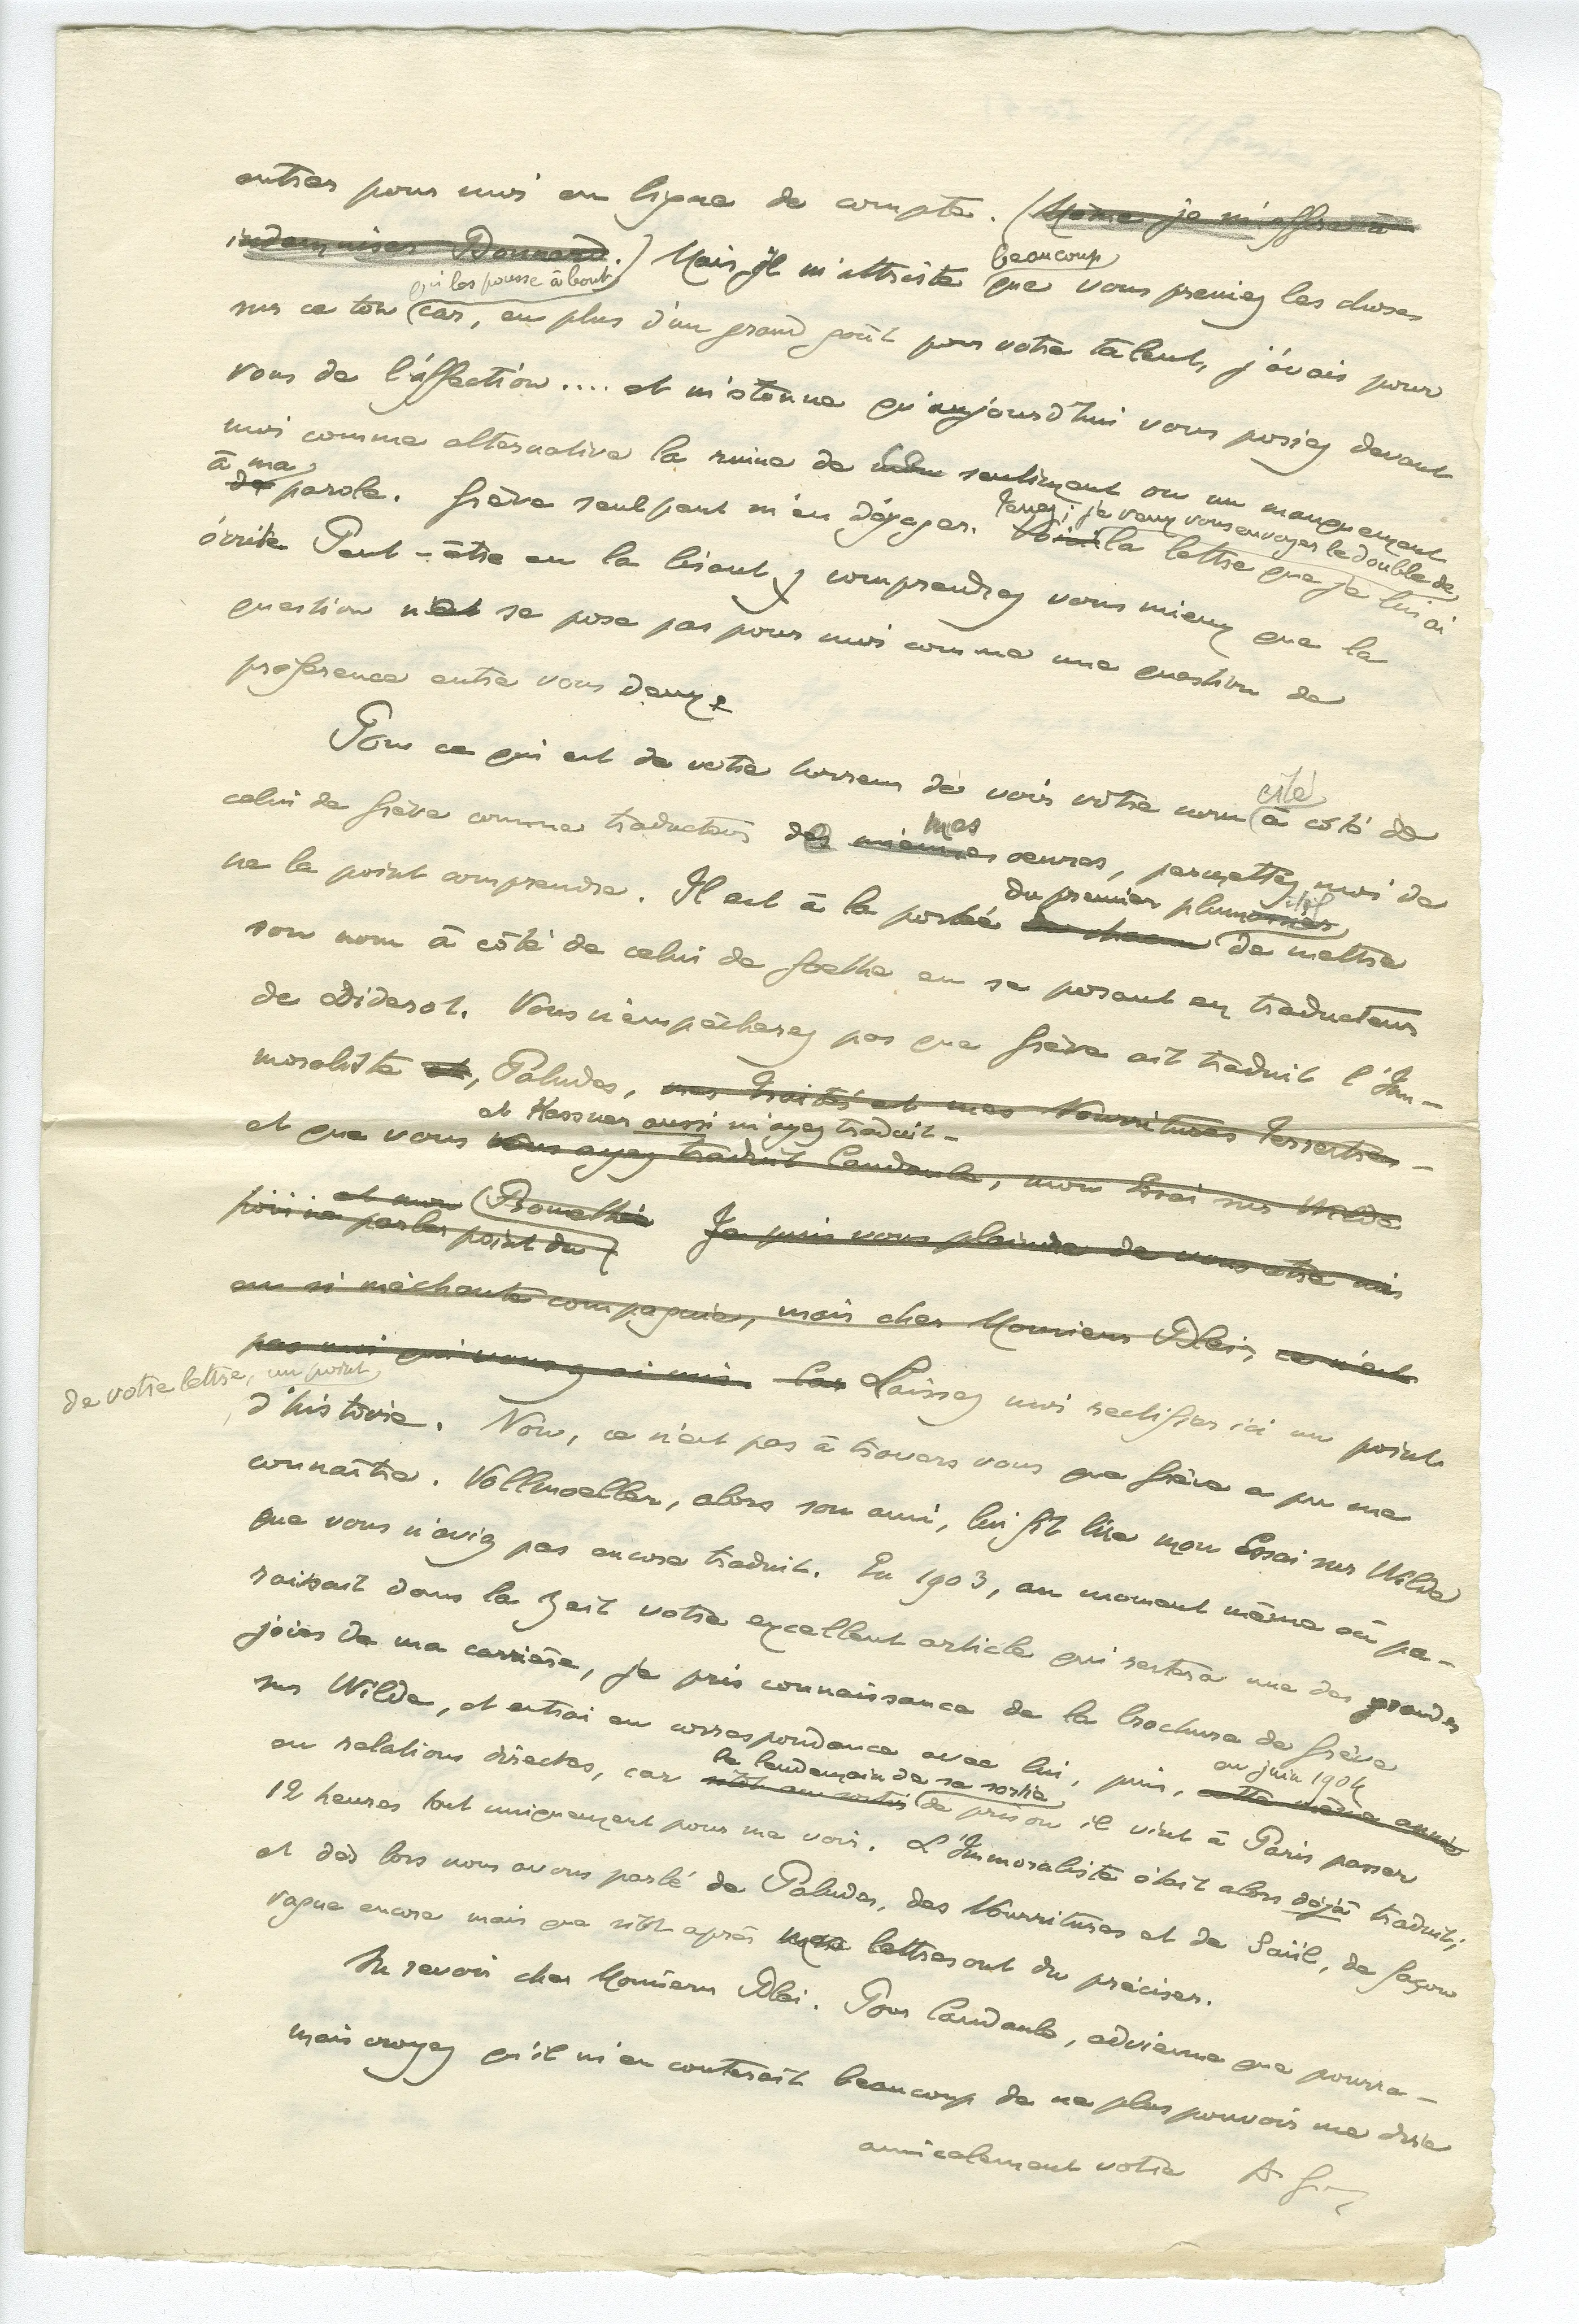 entrer pour moi en ligne de compte. (Même je m'offre à
indemniser Bonnard.) Mais il m'attriste beaucoup que vous preniez les choses
sur ce ton qui les pousse à bout car, en plus d'un grand goût pour votre talent, j'avais pour
vous de l'affection.... et m'étonne qu'aujourd'hui vous posiez devant
moi comme alternative la ruine de sentiment ou un manquement
à ma parole. Greve seul peut m'en dégager. Tenez; je veux vous envoyer le double de
la lettre que je lui ai
écrite Peut-être en la lisant y comprendrez vous mieux que la
question ne se pose pas pour moi comme une question de
préférence entre vous deux.
Pour ce qui est de votre horreur de voir votre nom cité à côté de
celui de Greve comme traducteur de mes oeuvres, permettez moi de
ne la point comprendre. Il est à la portée de chacun du premier plumitif de mettre
son nom à côté de celui de Goethe en se posant en traducteur
de Diderot. Vous n'empêcherez pas que Greve ait traduit l'Im-
moraliste et, Paludes, mes Traités et mes Nourritures Terrestres -
et que vous et Kassner aussi m'ayez traduit -
vous ayez traduit Candaule, mon Essai sur Wilde
et mon Prométhée Je puis vous plaindre de vous être mis
pour ne parler point du
en si méchante compagnie, mais cher Monsieur Blei, ce n'est
pas moi qui vous y ai mis. Car Laissez moi rectifier ici un point
de votre lettre, un point
d'histoire. Non, ce n'est pas à travers vous que Greve a pu me
connaître. Vollmoeller, alors son ami, lui fit lire mon Essai sur Wilde
que vous n'aviez pas encore traduit. En 1903, au moment même où pa-
raissait dans la Zeit votre excellent article qui restera une des grandes
joies de ma carrière, je pris connaissance de la brochure de Greve
sur Wilde, et entrai en correspondance avec lui, puis, cette même année en juin 1904
en relations directes, car sitôt sorti le lendemain de sa sortie de prison il vint à Paris passer
12 heures tout uniquement pour me voir. L'Immoraliste était alors déjà traduit;
et dès lors nous avons parlé de Paludes, des Nourritures et de Saül, de façon
vague encore mais que sitôt après mes lettres ont du préciser.
Au revoir cher Monsieur Blei. Pour Candaule, advienne que pourra -
mais croyez qu'il m'en couterait beaucoup de ne plus pouvoir me dire
amicalement votre A. G